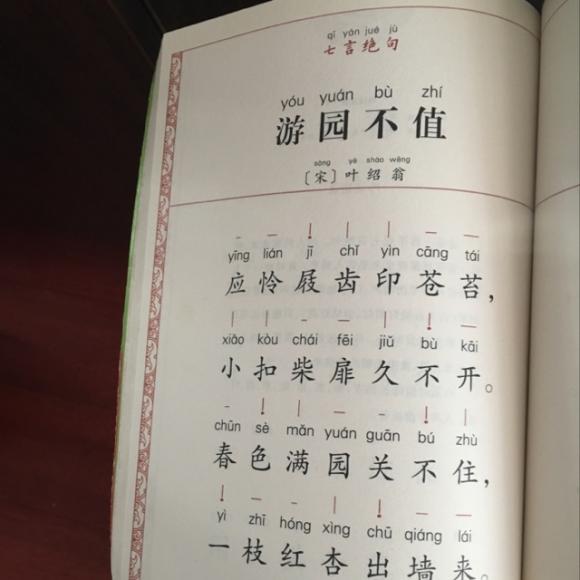 qī yán jué jù
七言绝句
yóu yuán bù zhí
游园不值
sòng yè shào wēng
〔宋〕叶绍翁
yīng lián jī chǐ yìn cāng tái
应怜屐齿印苍苔，
xiǎo kòu chái fēi jiǔ bù kāi
小扣柴扉久不开。
chūn sè mǎn yuán guān bú zhù
春色满园关不住，
yì zhī hóng xìng chū qiáng lái
一枝红杏出墙来。